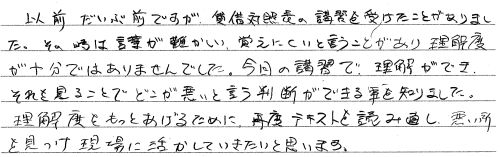 以前 だいぶ前ですが、貸借対照表の講習を受けたことがありまし
た。その時は言葉が難かしい、覚えにくいと言うことがあり 理解度
が十分ではありませんでした。今回の講習で、理解ができ、
それを見ることでどこが悪いと言う判断ができる事を知りました。
理解度をもっとあげるために、再度テキストを読み直し、悪い所
を見つけ 現場に活かしていきたいと思います。